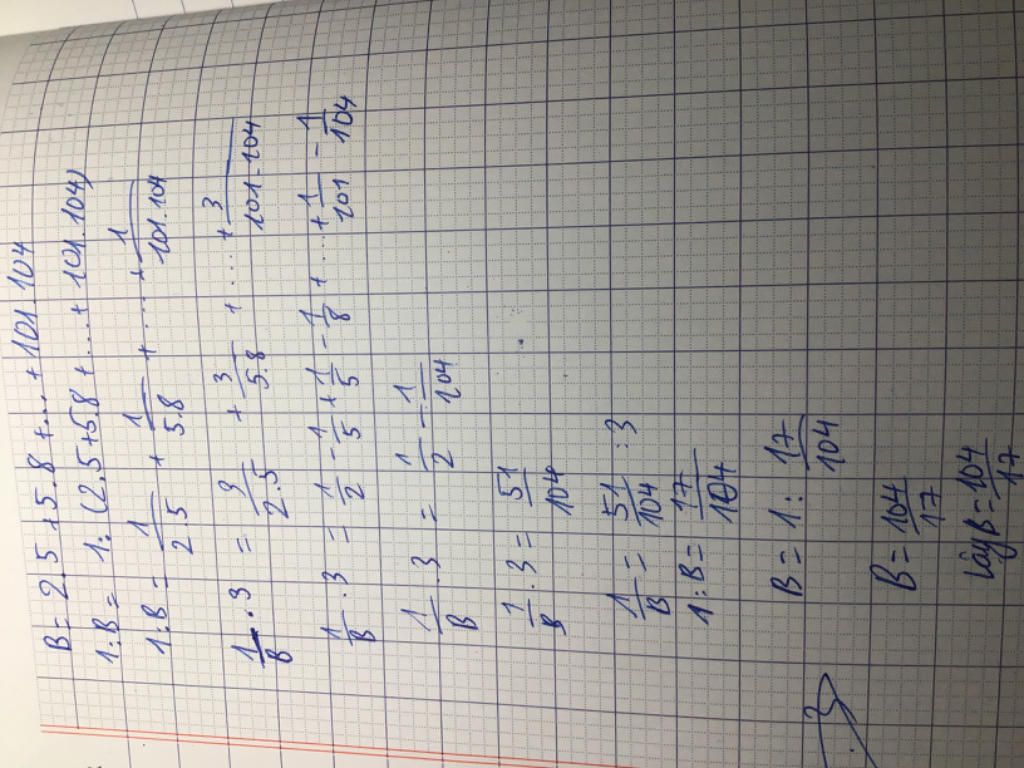 B = 2.5 + 5.8 + ... + 101.104
1:B = 1:(2.5+5.8+...+ 101.104)
1:B = 1/2.5 + 1/5.8 + ... + 1/101.104
1/B . 3 = 3/2.5 + 3/5.8 + ... + 3/101.104
1/B . 3 = 1/2 - 1/5 + 1/5 - 1/8 + ... + 1/101 - 1/104
1/B . 3 = 1/2 - 1/104
1/B . 3 = 51/104
1/B = 51/104 : 3
1:B = 17/104
B = 1 : 17/104
B = 104/17
Vậy B = 104/17